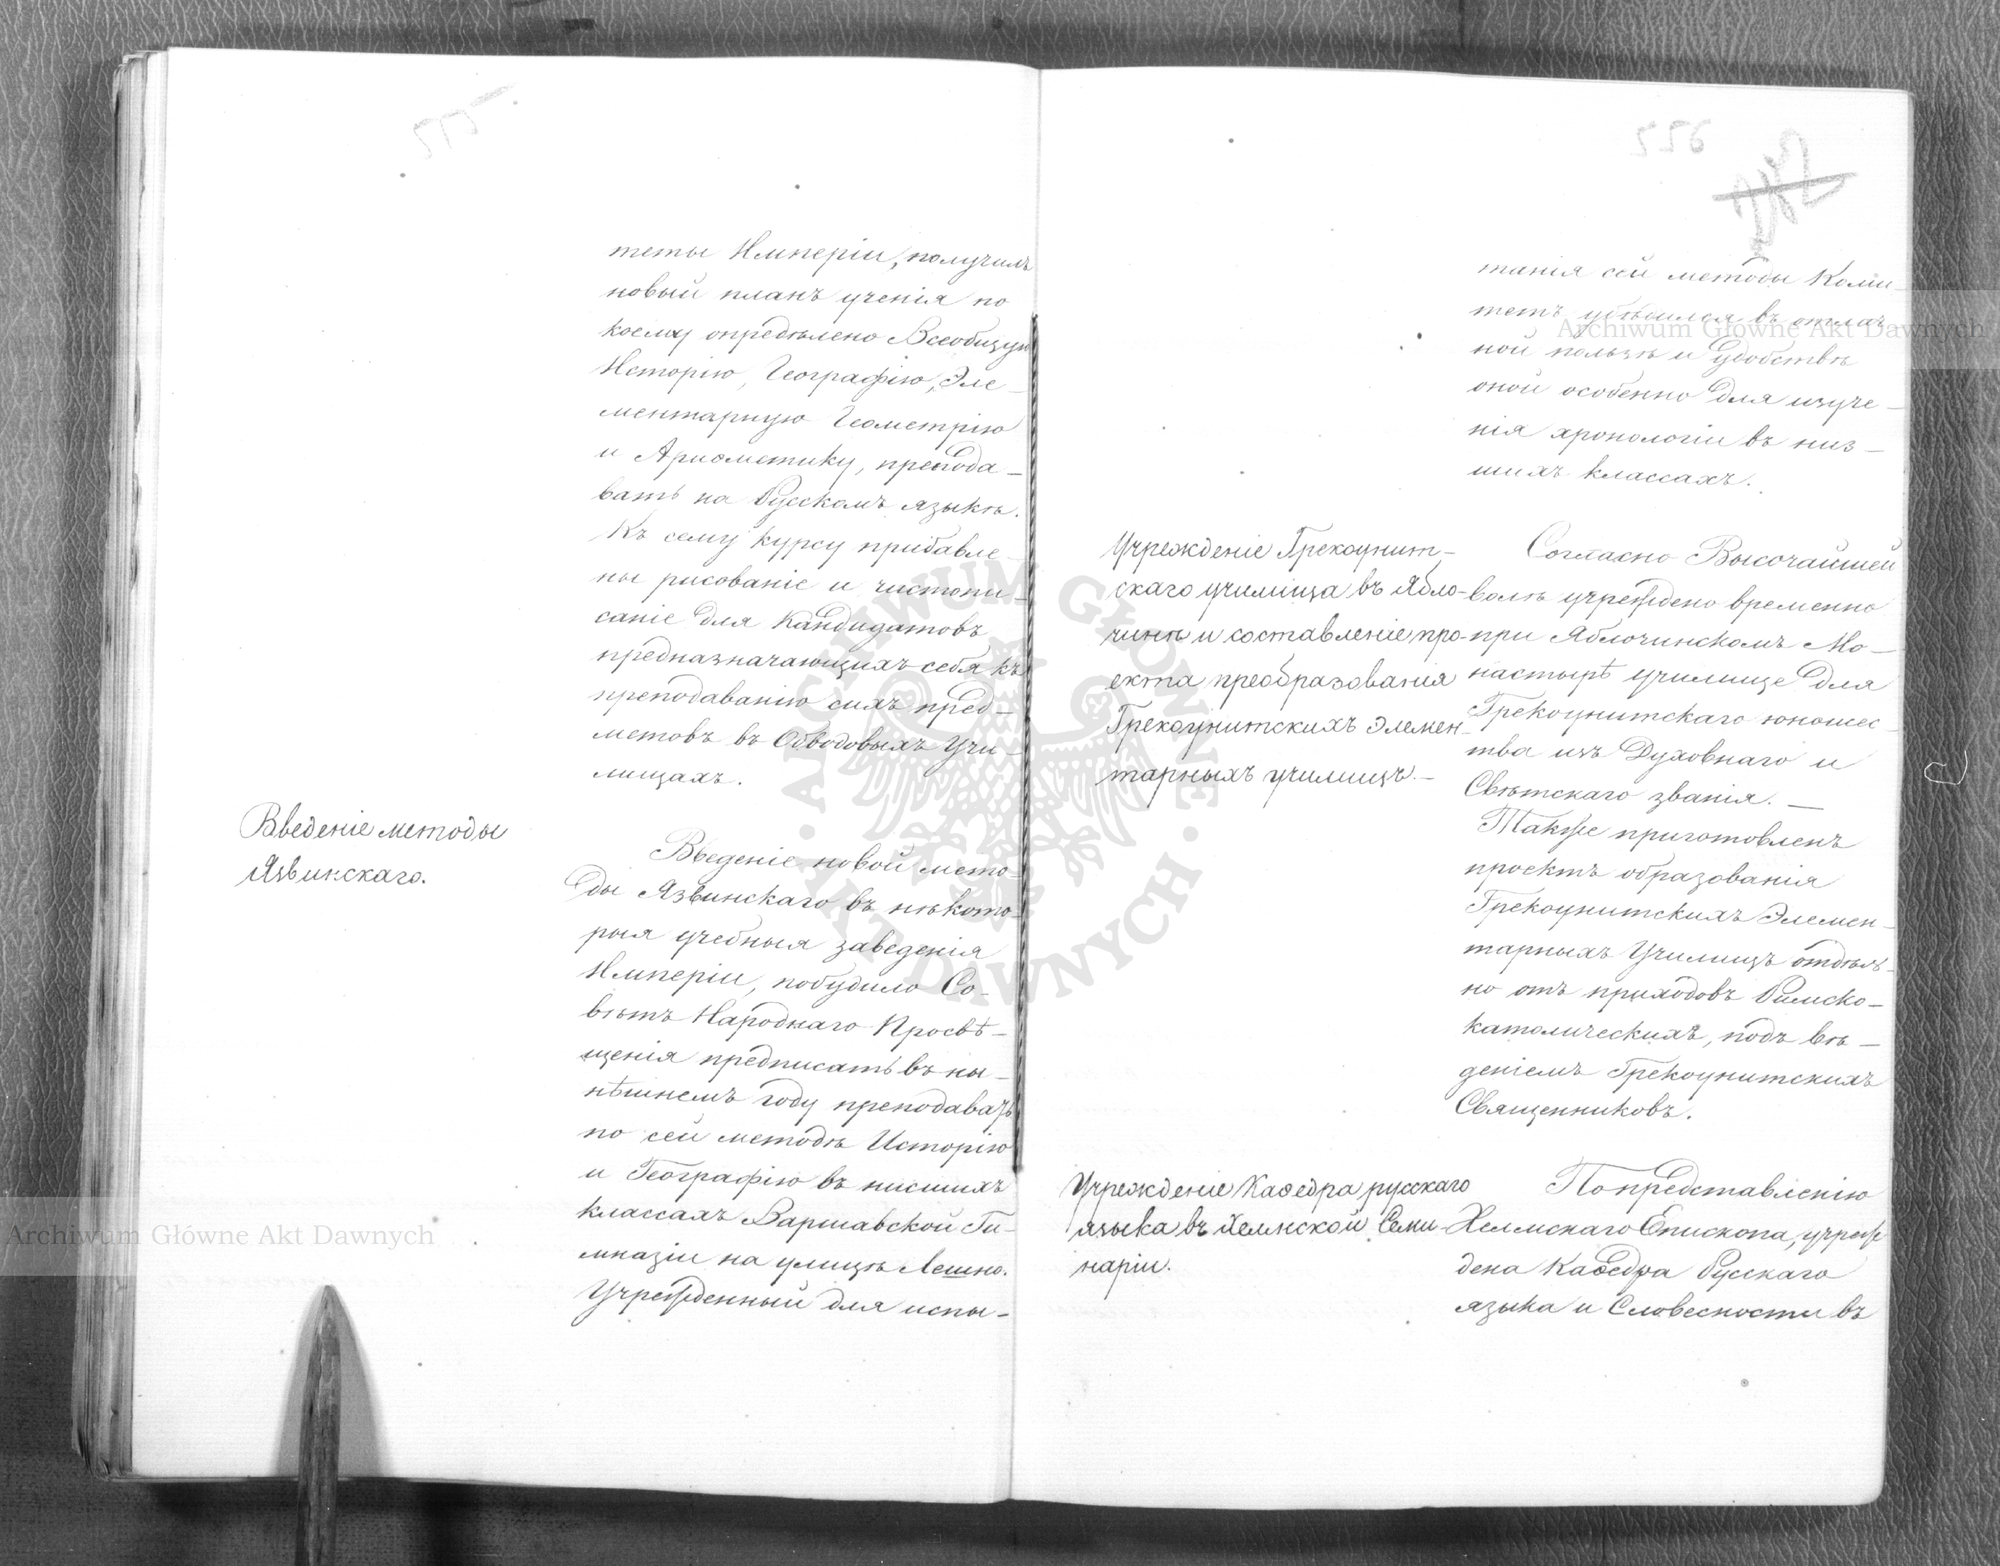 теты Имперіи, получилъ
новый планъ ученія по
коему опредѣлено Всеобщую
Исторію, Географію, Эле-
ментарную Геометрію
и Ариѳметику, препода-
вать на Русскомъ языкѣ.
Къ сему курсу прибавле-
ны рисованіе и чистопи-
саніе для Кандидатовъ
предназначающихъ себя къ
преподаванію сихъ пред-
метовъ въ Обводовыхъ Учи-
лищахъ.
Введеніе методы
Язвинскаго.
Введеніе новой мето-
ды Язвинскаго въ нѣкото-
рыя учебныя заведенія
Имперіи, побудило Со-
вѣтъ Народнаго Просвѣ-
щенія предписать въ ны-
нѣшнемъ году преподавать
по сей методѣ Исторію
и Географію въ нисшихъ
классахъ Варшавской Ги-
мназіи на улицѣ Лешно.
Учрежденный для испы-
226
танія сей методы Коми-
тетъ убѣдился въ отлич-
ной пользѣ и удобствѣ
оной особенно для изуче-
нія хронологіи въ низ-
шихъ классахъ.
Учрежденіе Грекоунит-
скаго училища въ Ябло-
чинѣ и составленіе про-
екта преобразованія
Грекоунитскихъ Элемен-
тарныхъ училищъ.-
Согласно Высочайшей
волѣ учреждено временно
при Яблочинскомъ Мо-
настырѣ училище для
Грекоунитскаго юношес-
тва изъ Духовнаго и
Свѣтскаго званія. —
Также приготовленъ
проектъ образованія
Грекоунитскихъ Элемен-
тарныхъ Училищъ отдѣль-
но отъ приходовъ Римско-
католическихъ, подъ вѣ-
деніемъ Грекоунитскихъ
Священниковъ.
Учрежденіе Каѳедра русскаго
языка въ Хелмской Семи-
наріи.
По представленію
Хелмскаго Епископа, учреж
дена Каѳедра Русскаго
языка и Словесности въ
Archiwum Główne Akt Dawnych
Archiwum Główne Akt Dawnych
ARCHIWUM GŁÓWNE · AKT DAWNYCH ·